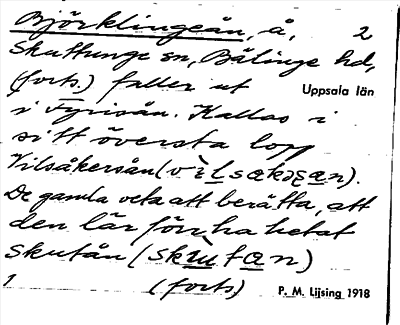 Björklingeån, å, 2
Skuttunge sn, Bälinge hd,
(forts.) faller ut Uppsala län
i Fyrisån. Kallas i
sitt översta lopp
Vilsåkersån
De gamla veta att berätta, att
den lär förr ha hetat
Skutån
1 (forts) P. M. Liising 1918